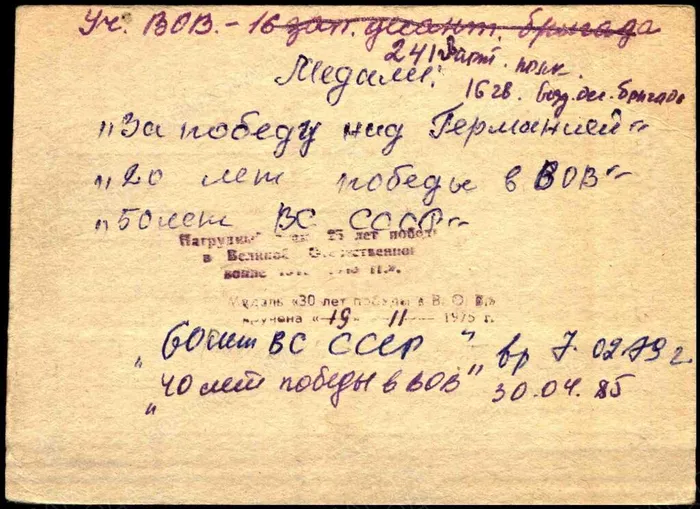 Уч. ВОВ. - 16 зап. десант. бригада
241 Зап. полк.
Медали:
16 гв. возд. дес. бригада
"За победу над Германией"
"20 лет победы в ВОВ"
"50 лет ВС СССР"
Нагрудный знак 25 лет победы
в Великой Отечественной
войне
Медаль «30 лет победы в В.О.В.»
вручена «19» 11 1975 г.
"60 лет ВС СССР" вр 7.02.79 г
"40 лет победы в ВОВ" 30.04.85